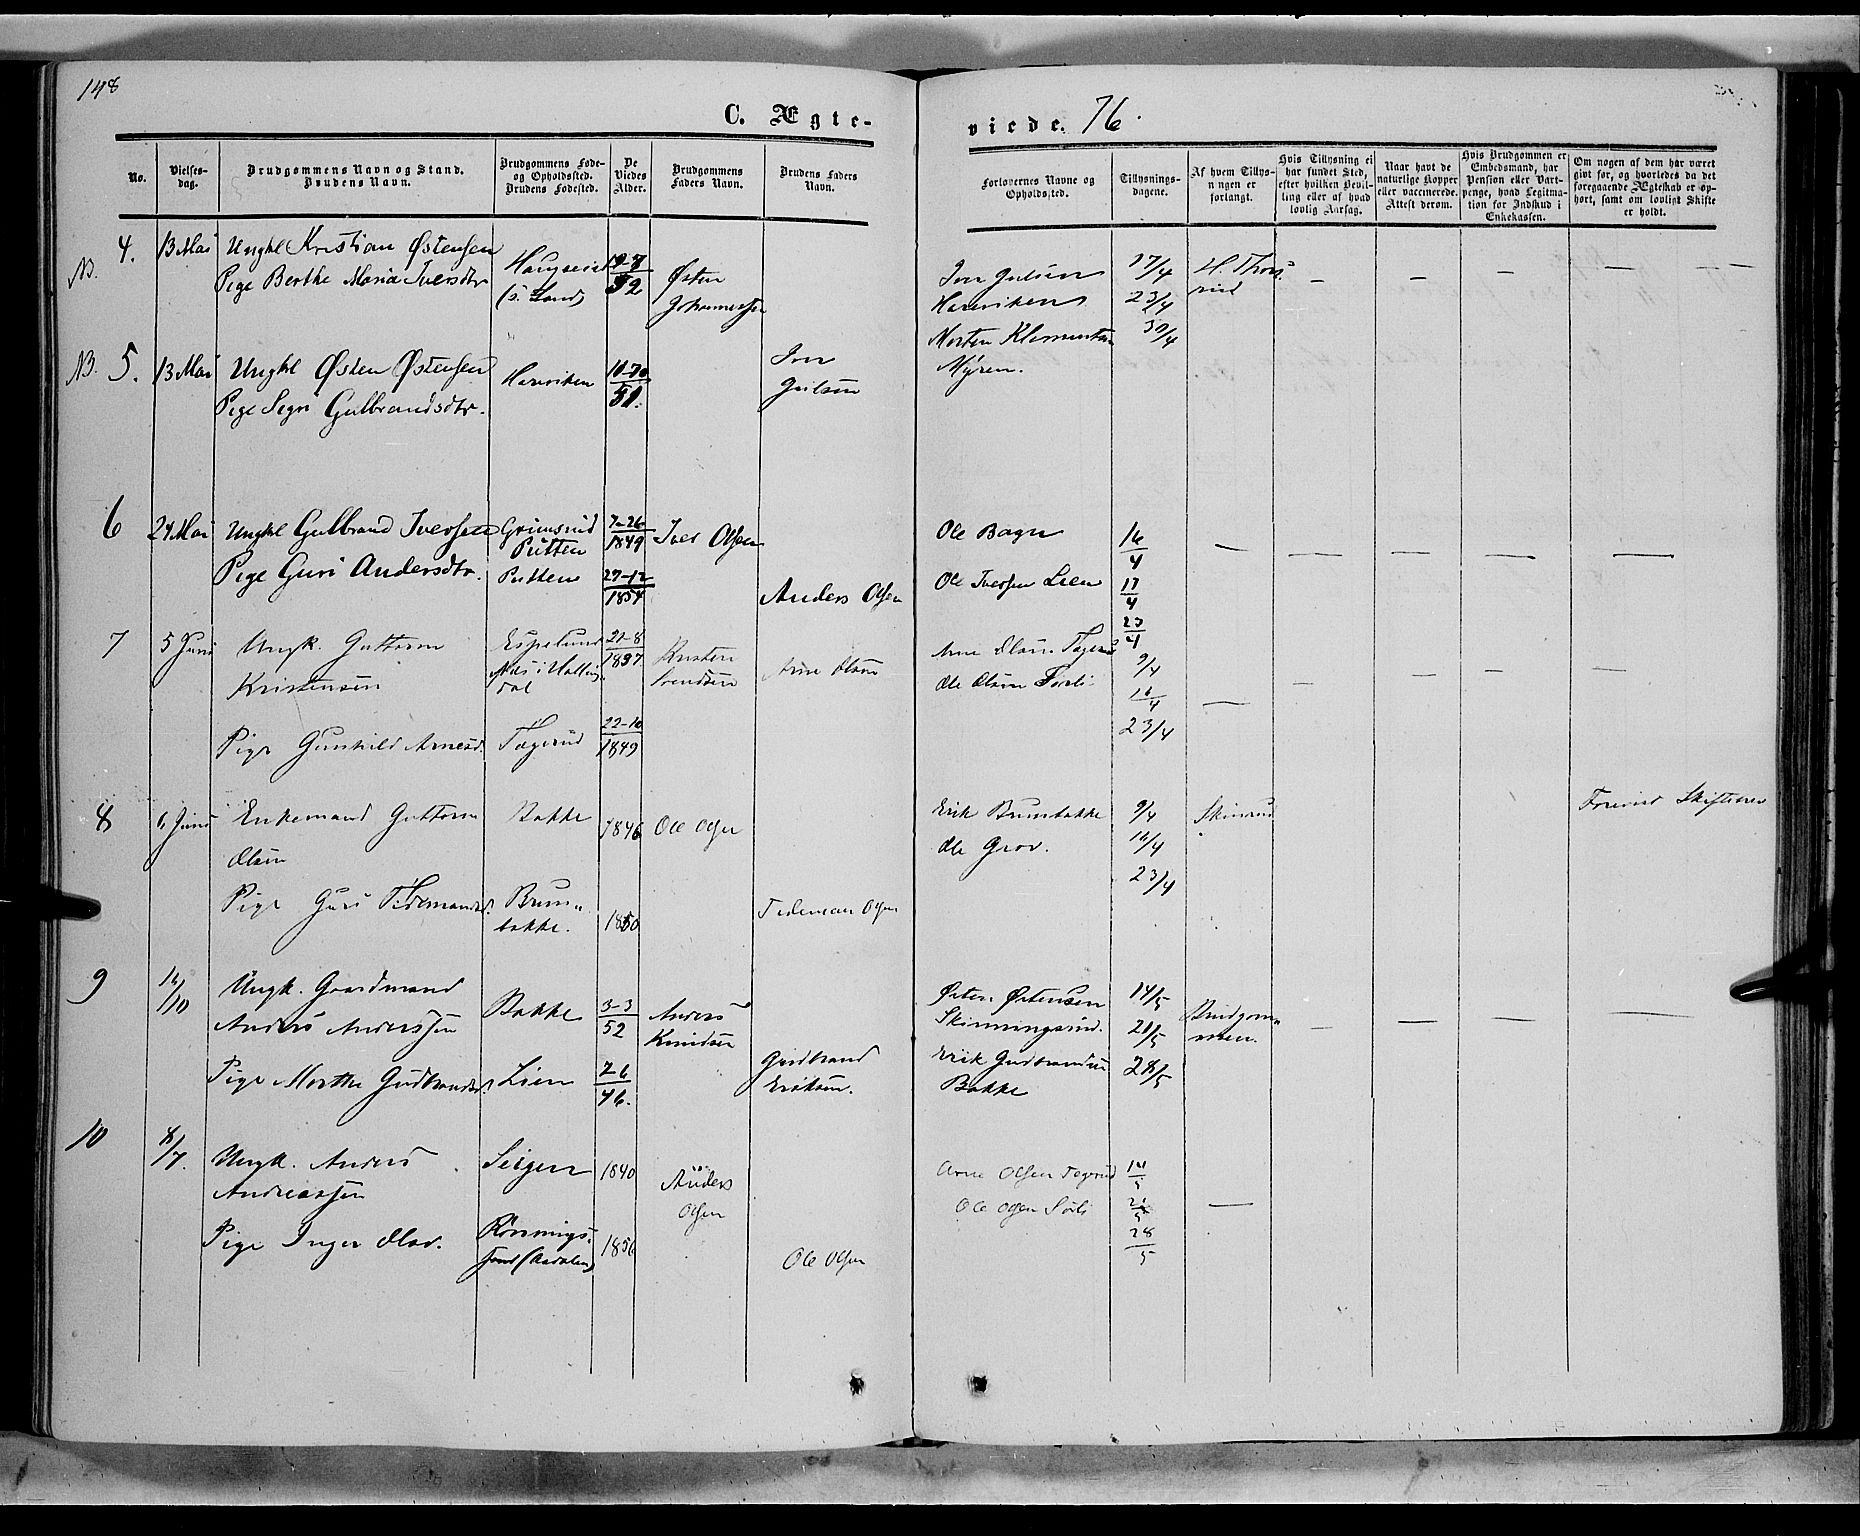 148
C. Ægte-
viede. 76.
No.
Vielses-
dag.
Brudgommens Navn og Stand.
Brudens Navn.
Brudgommens Føde-
og Opholdssted.
Brudens Fødested.
De
Viedes
Alder.
Brudgommens
Faders Navn.
Brudens Faders
Navn.
Forlovernes Navne og
Opholdssted.
Tillysnings-
dagene.
Af hvem Tillys-
ningen er
forlangt.
Hvis Tillysning ei
har fundet Sted,
efter hvilken Bevil-
ling eller af hvad
lovlig Aarsag.
Naar havt de
naturlige Kopper
eller vaccinerede.
Attest derom.
Hvis Brudgommen er
Embedsmand, har
Pension eller Vart-
penge, hvad Legitima-
tion for Indskud i
Enkekassen.
Om nogen af dem har været
gift før, og hvorledes da det
foregaaende Ægteskab er op-
hørt, samt om lovligt Skifte
er holdt.
NB. 4. 13 Mai Ungkl Kristian Østensen
Pige Berthe Maria Iversdtr
(S. Land)
52
Østen
Johannessen
17/4
23/4
30/4
Morten Klementsen
Myren.
NB. 5. 13 Mai Ungkl Østen Østensen
Pige Segri Gulbrandsdtr.
51.
Iver
6 24 Mai Ungkl Gulbrand Iversen Grimsrud
Putten
7-26
1849
Iver Olsen
Pige Guri Andersdtr. Putten
27-12
1854
Anders Olsen
Ole Bagn
Ole Iversen Lien
16
4
17
4
23
4
7 5 Juni Ungk. Guttorm
Kristensen
Espelund
Næs i Halling
dal
21-8
Arne Olsen
Pige Gunhild Arnesd. Tægerud
22-10
1849
Arne Olsen Tægerud
Ole Olsen Sørli
9/4
16/4
23/4
8 6 Juni Enkemand Guttorm
Olsen
Bakke
1846
Ole Olsen
Pige Guri Tidemandsd. Brun-
bakke.
1850
Tideman Olsen
Erik Brunbakke
Ole Grov.
9/4
16/4
23/4
Skinrud
9 Ungk. Gaardmand
Anders Anderssen
Bakke
3-3
52
Anders
Knudsen
Pige Marthe Gudbrandsd. Lien
7-6
46.
Gudbrand
Eriksen.
Østen Østensen
Skinningsrud.
Erik Gudbrandsen
Bakke
14/5
21/5
28/5
Brudgom-
men.
10 8/7. Ungk. Anders
Andreassen
1840
Anders
Olsen
Pige Inger Olsd.
(Aadalen)
1856
Ole Olsen
Arne Olsen Tægerud
Ole Olsen Sørli
14
5
21
5
28
5